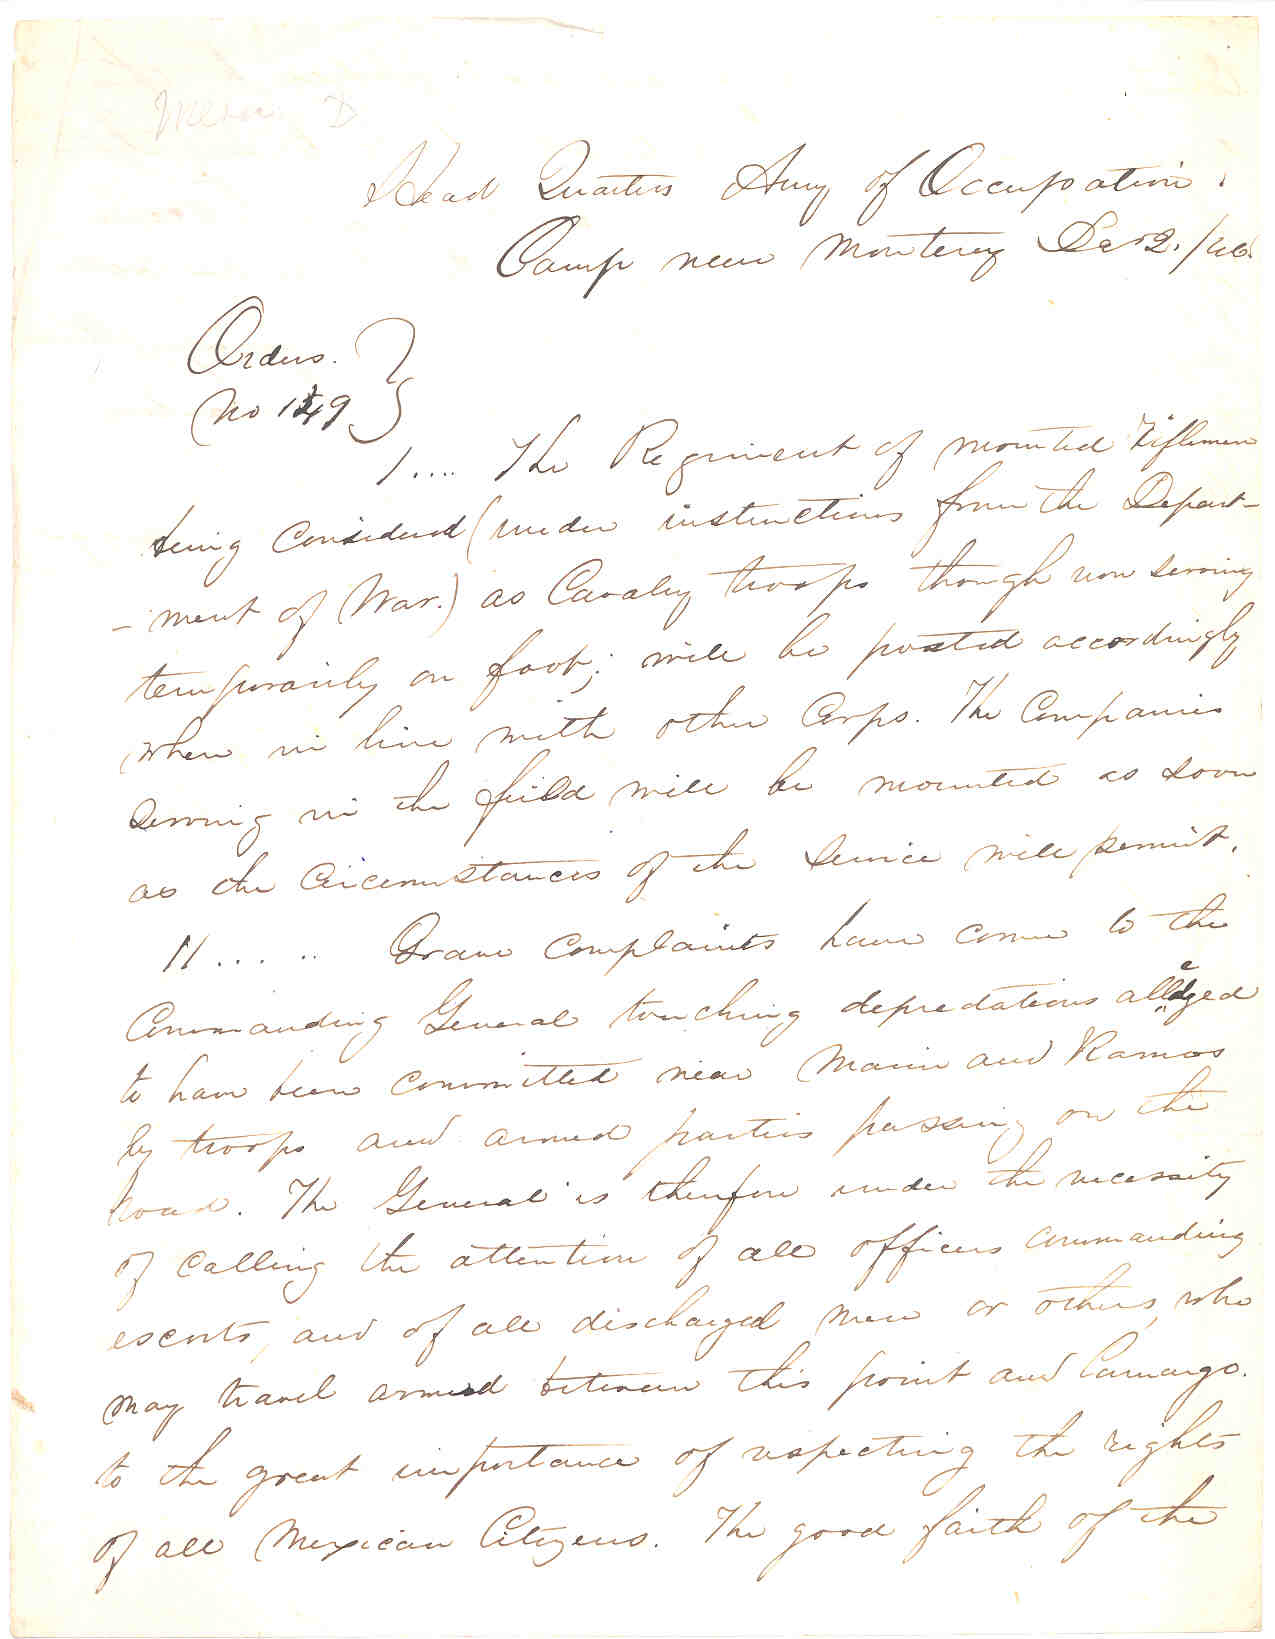 Head Quarters Army of Occupation.
Camp near Monterey Dec 2./46.
Orders.
No 149
I.... The Regiment of mounted Riflemen
being considered (under instructions from the Depart-
-ment of War.) as Cavalry troops though now serving
temporarily on foot; will be posted accordingly
when in line with other Corps. The Companies
serving in the field will be mounted as soon
as the Circumstances of the Service will permit.
II..... Grave complaints have come to the
Commanding General touching depredations alledged
to have been committed near Marin and Ramos
by troops and armed parties passing on the
road. The General is therefore under the necessity
of calling the attention of all officers commanding
escorts, and of all discharged men or others, who
may travel armed between this point and Camargo.
to the great importance of respecting the rights
of all Mexican Citizens. The good faith of the